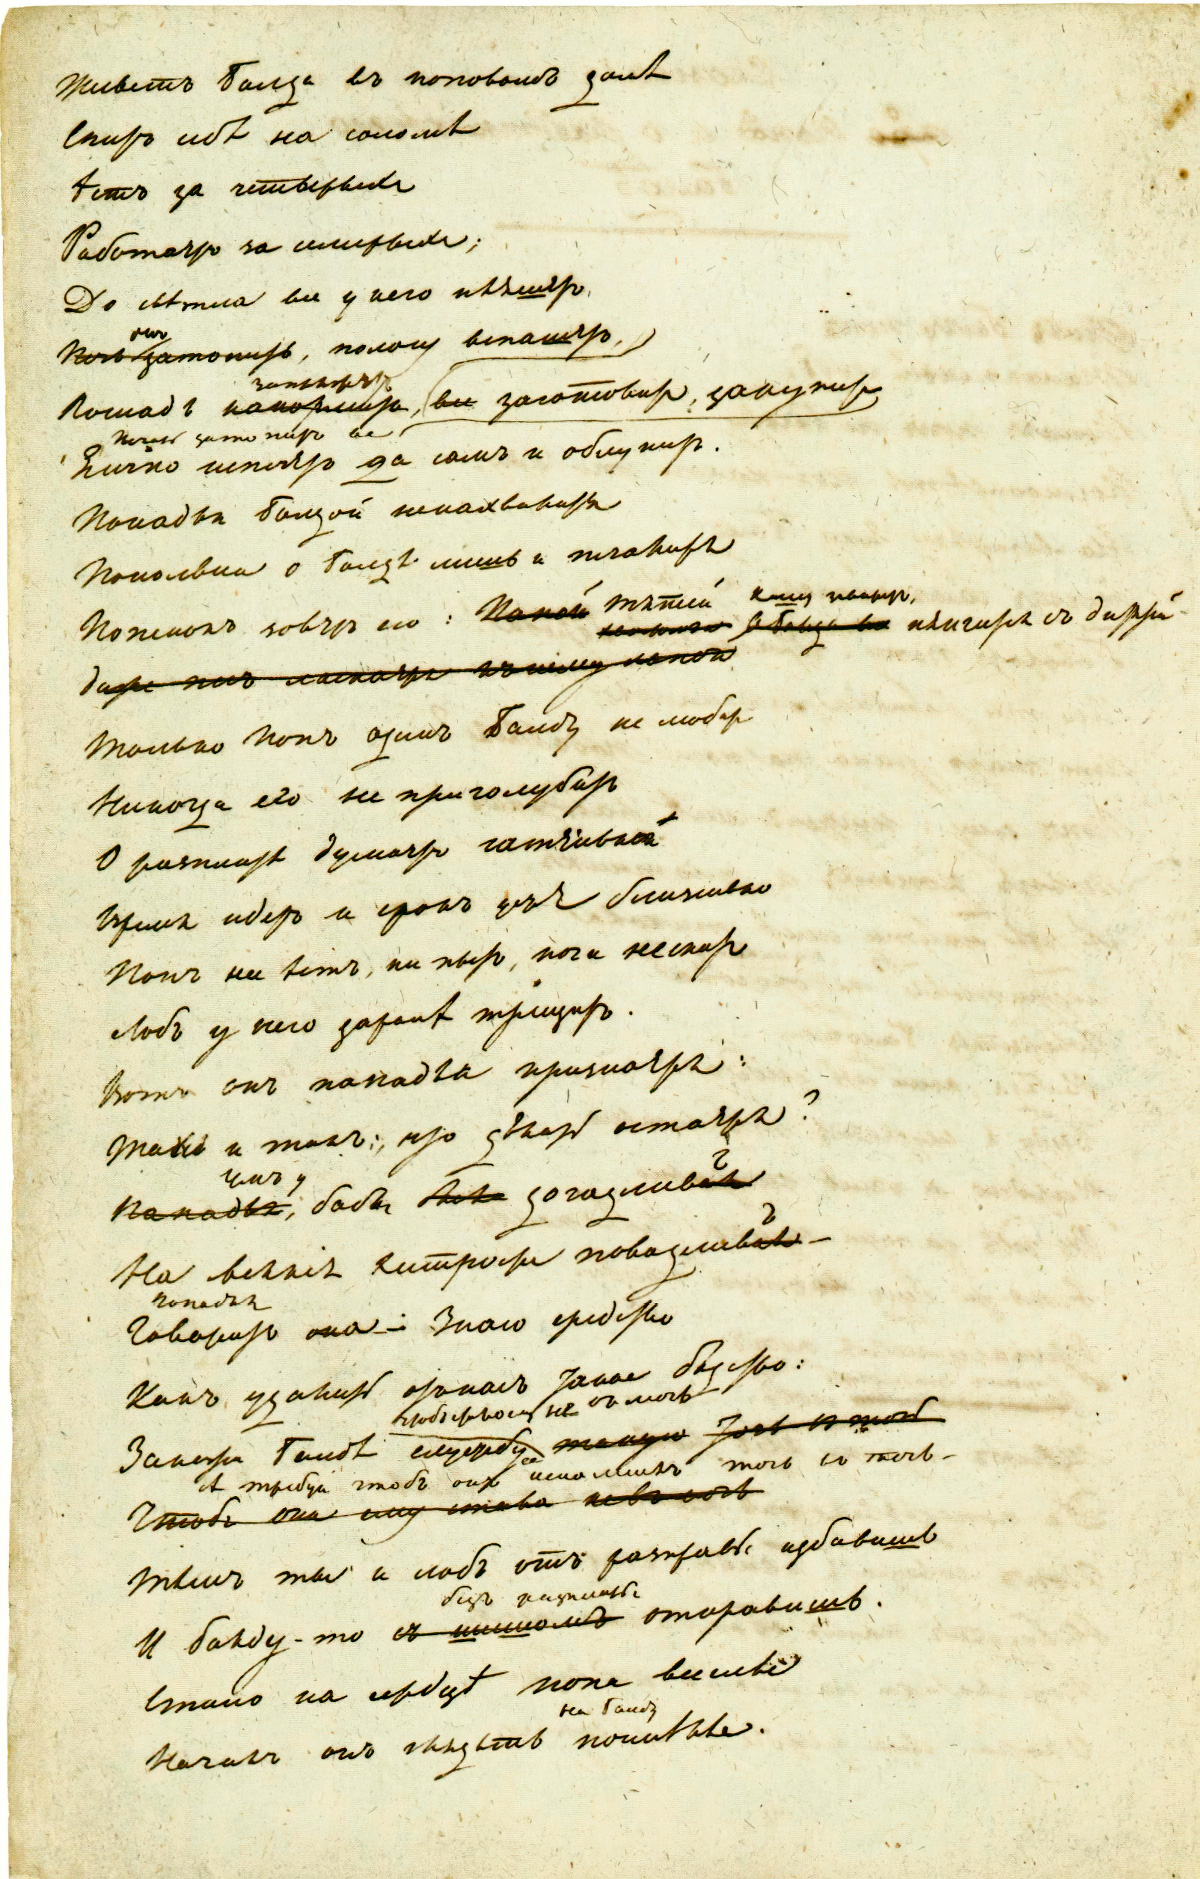 Живетъ Балда въ поповомъ домѣ
Спитъ себѣ на соломѣ
ѣстъ за четверыхъ
Работаетъ за семерыхъ;
До свѣтла все у него пляшетъ.
Печь затопитъ, полосу вспашетъ,
Лошадь запряжетъ
накормитъ, все заготовитъ, закупитъ
Печь затопитъ
Яичко испечетъ да самъ и облупитъ.
Попадья Балдой не нахвалится
Поповна о Балдѣ лишь и печалится
Попенокъ зоветъ его: тятей кашу
нянчится съ дитятей
даже песъ ласкается къ нему
Только попъ одинъ Балду не любитъ
Никогда его не приголубитъ
О расплатѣ думаетъ частенько
Время идетъ и срокъ ужъ близенько
Попъ ни ѣстъ, ни пьетъ, ночи не спитъ
Лобъ у него заранѣ трещитъ.
Вотъ онъ попадьѣ признается:
Такъ и такъ: что дѣлать остается?
Умъ у
Попадья, бабы догадливъ
На всякія хитрости повадливъ
попадья
Говоритъ она — Знаю средство
Какъ удалить отъ насъ такое бѣдство:
чтобъ стало ему не въ мочь
Закажи Балдѣ службу
А требуй чтобъ онъ ее исполнилъ точь въ точь —
Чтобъ она ему стала не въ мочь
Тѣмъ ты и лобъ отъ расправы избавишь
безъ расплаты
И Балду-то отправишь.
Стало на сердцѣ попа веселѣе
на Балду
Началъ онъ глядѣть посмѣлѣе.